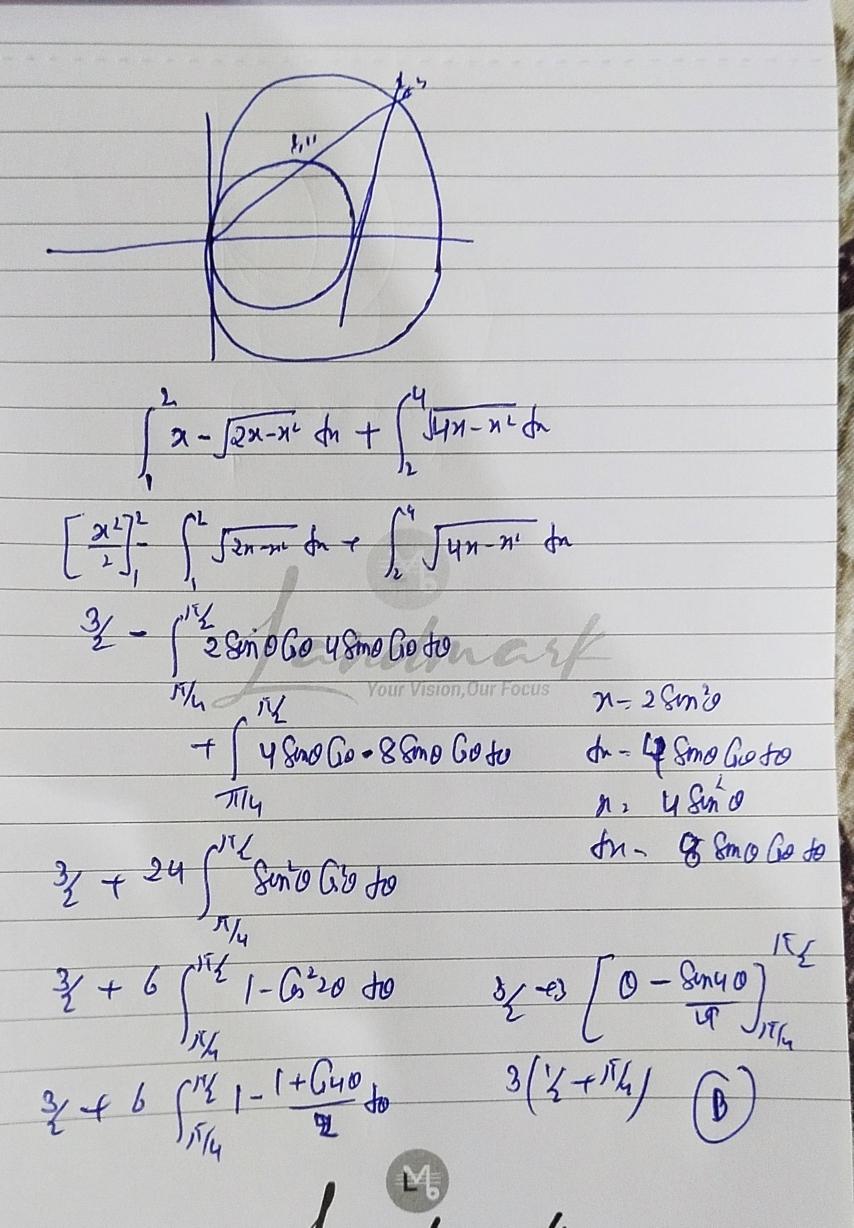 1,11
∫₁² x - √(2x-x²) dx + ∫₂⁴ √(4x-x²) dx
[x²/2]₁² - ∫₁² √(2x-x²) dx + ∫₂⁴ √(4x-x²) dx
3/2 - ∫_{π/4}^{π/2} 2 Sinθ Cosθ 4 Sinθ Cosθ dθ
Landmark
Your Vision, Our Focus
+ ∫_{π/4}^{π/2} 4 Sinθ Cosθ · 8 Sinθ Cosθ dθ
x = 2 Sin²θ
dx = 4 Sinθ Cosθ dθ
x = 4 Sin²θ
dx = 8 Sinθ Cosθ dθ
3/2 + 24 ∫_{π/4}^{π/2} Sin²θ Cos²θ dθ
3/2 + 6 ∫_{π/4}^{π/2} 1 - Cos²2θ dθ
3/2 + 3 [θ - Sin4θ/4]_{π/4}^{π/2}
3/2 + 6 ∫_{π/4}^{π/2} 1 - (1+Cos4θ)/2 dθ
3(1/2 + π/4) B